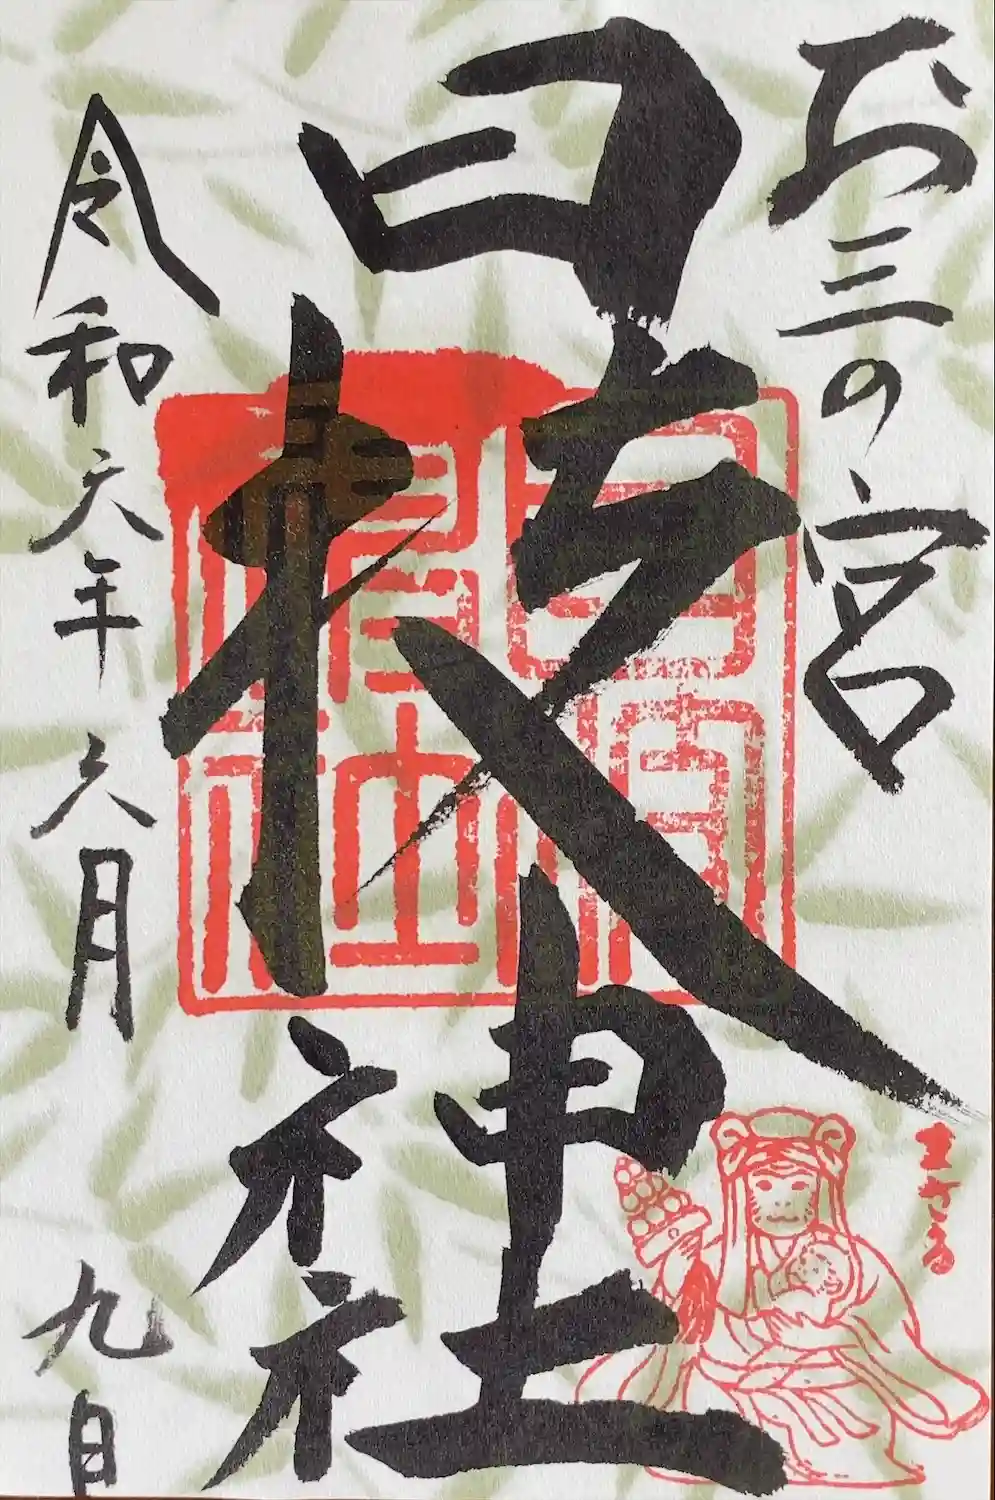 お三の宮
日枝神社
令和六年六月九日
まさる